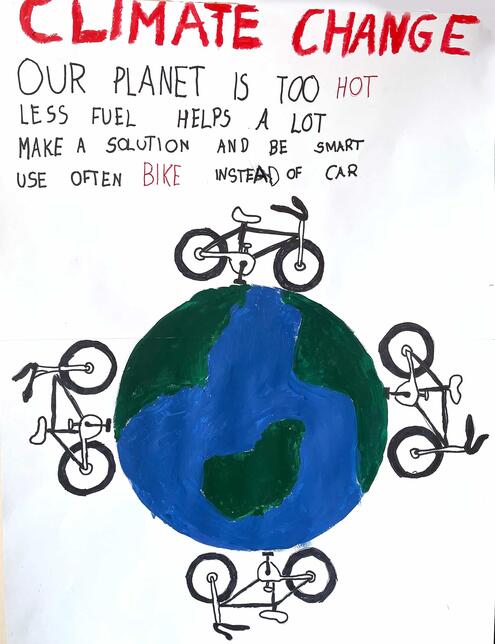 CLIMATE CHANGE
OUR PLANET IS TOO HOT
LESS FUEL HELPS A LOT
MAKE A SOLUTION AND BE SMART
USE OFTEN BIKE INSTEAD OF CAR